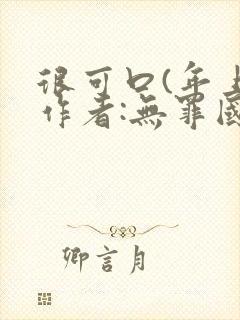 很可口(年上
作者:無罪國
卿言月